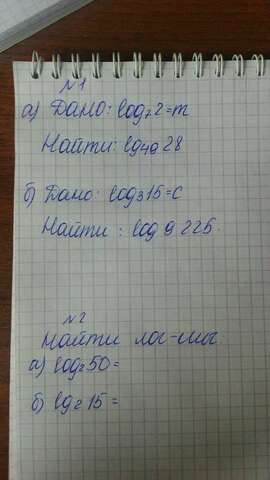 №1
а) Дано: log₇2=m
Найти: log₄₉28
б) Дано: log₃15=c
Найти: log 9 225.
№2
Найти лог-мы.
а) log₂50=
б) lg₂15=